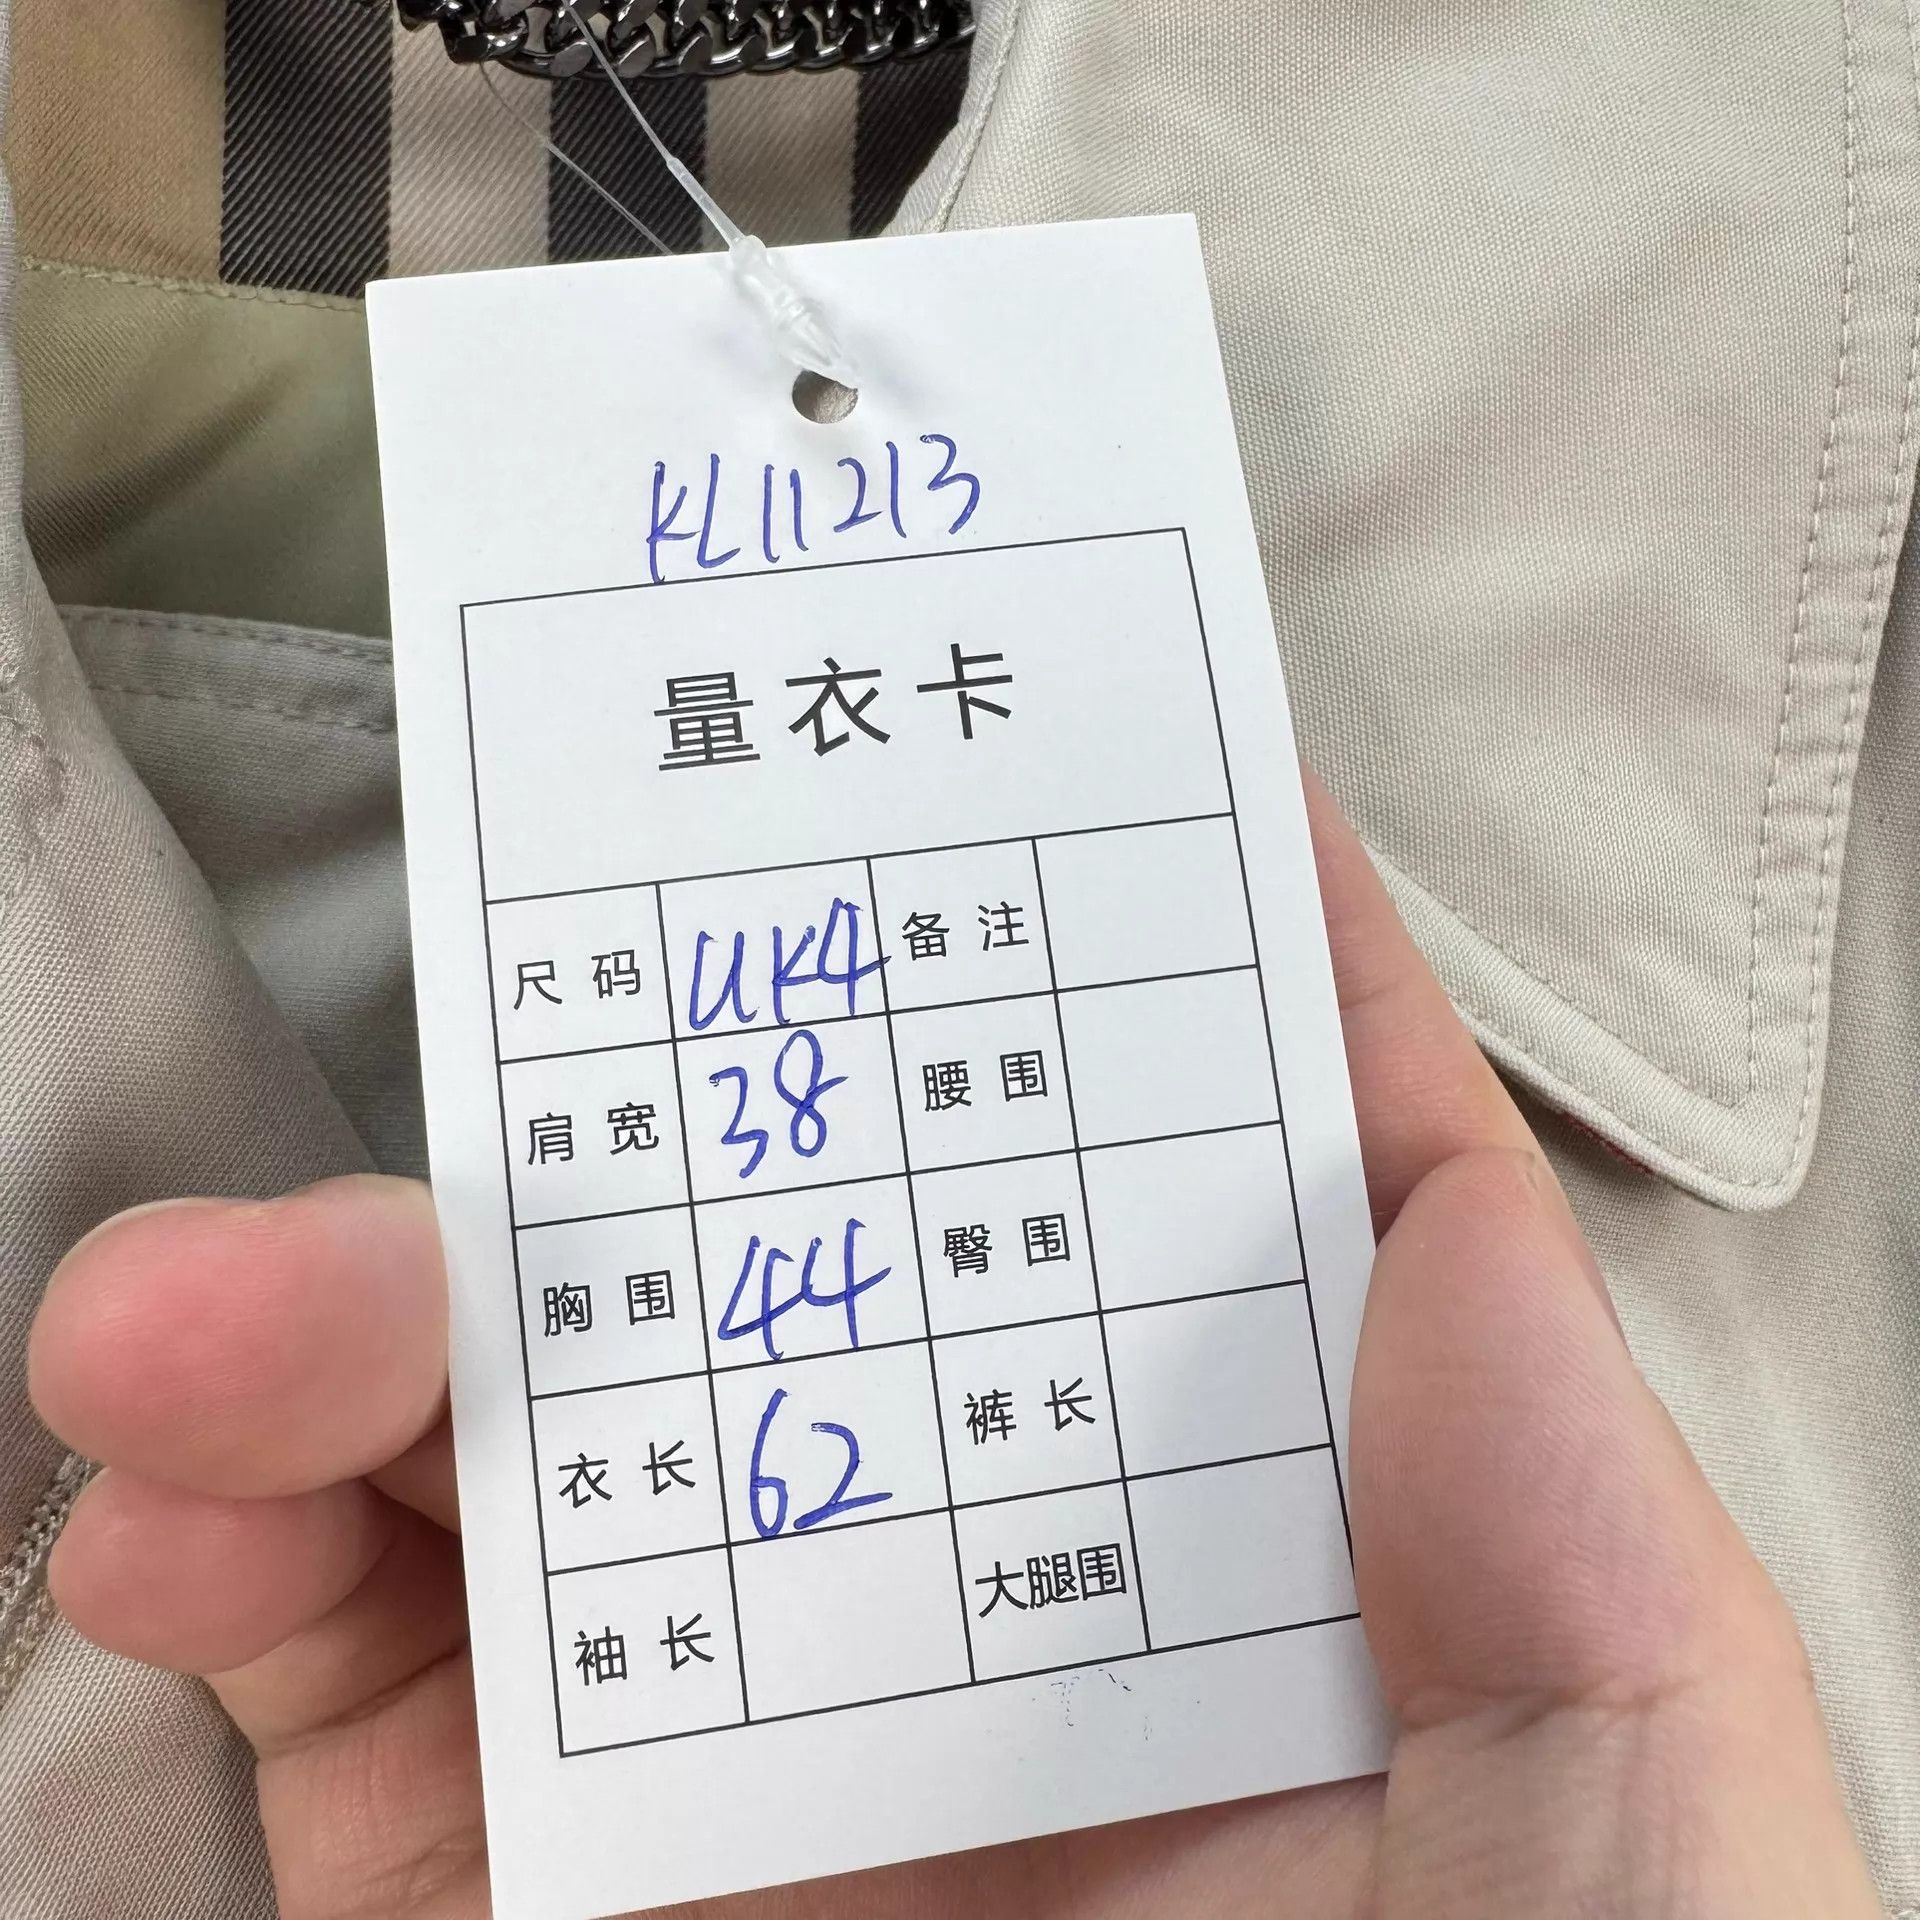 KL11213
量衣卡
尺码 UK4 备注
肩宽 38 腰围
胸围 44 臀围
衣长 62 裤长
袖长 大腿围